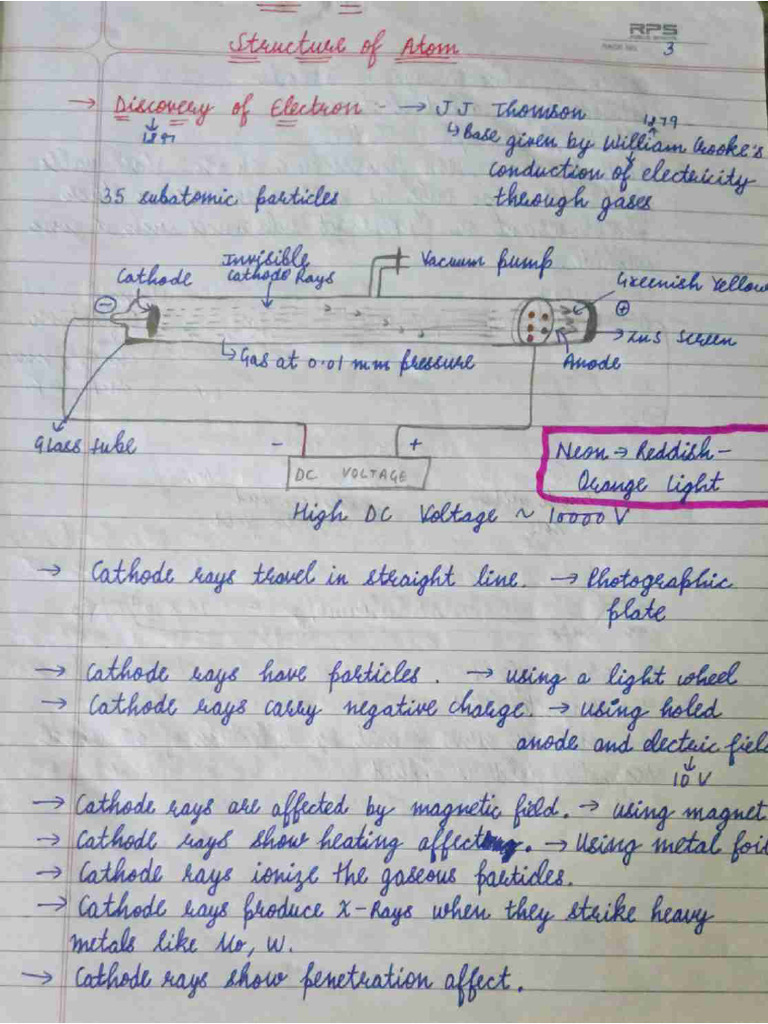 RPS
PAGE NO. 3
Structure of Atom
→ Discovery of Electron - → J J Thomson
1897
1879
↳ Base given by William Crooke's
conduction of electricity
through gases
35 subatomic particles
Invisible
Cathode Rays
Cathode
Vacuum pump
Greenish Yellow
ZnS Screen
Anode
↳ Gas at 0.01 mm pressure
Glass tube
- +
DC VOLTAGE
High DC Voltage ~ 10000 V
Neon → Reddish-
Orange Light
→ Cathode rays travel in straight line. → Photographic
plate
→ Cathode rays have particles. → using a light wheel
→ Cathode rays carry negative charge. → using holed
anode and electric field
10 V
→ Cathode rays are affected by magnetic field. → using magnet.
→ Cathode rays show heating affect. → Using metal foil
→ Cathode rays ionize the gaseous particles.
→ Cathode rays produce X-Rays when they strike heavy
metals like Mo, W.
→ Cathode rays show penetration affect.